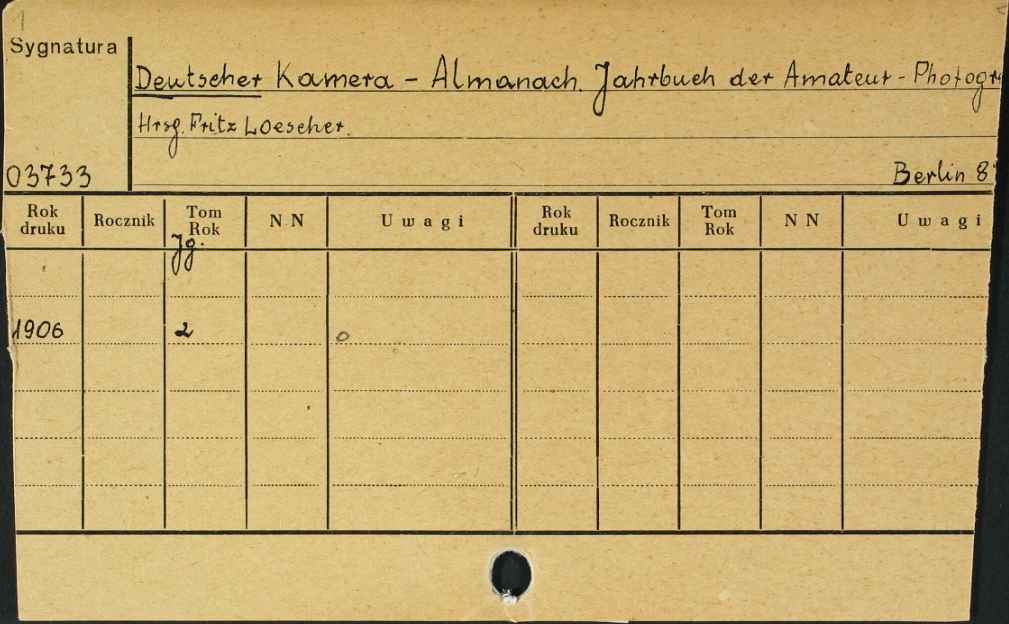 Sygnatura
Deutscher Kamera - Almanach. Jahrbuch der Amateur - Photogr
Hrsg. Fritz Loescher.
03733 Berlin 8°
Rok druku Rocznik Tom Rok N N Uwagi Rok druku Rocznik Tom Rok N N Uwagi
Jg.
1906 2 o